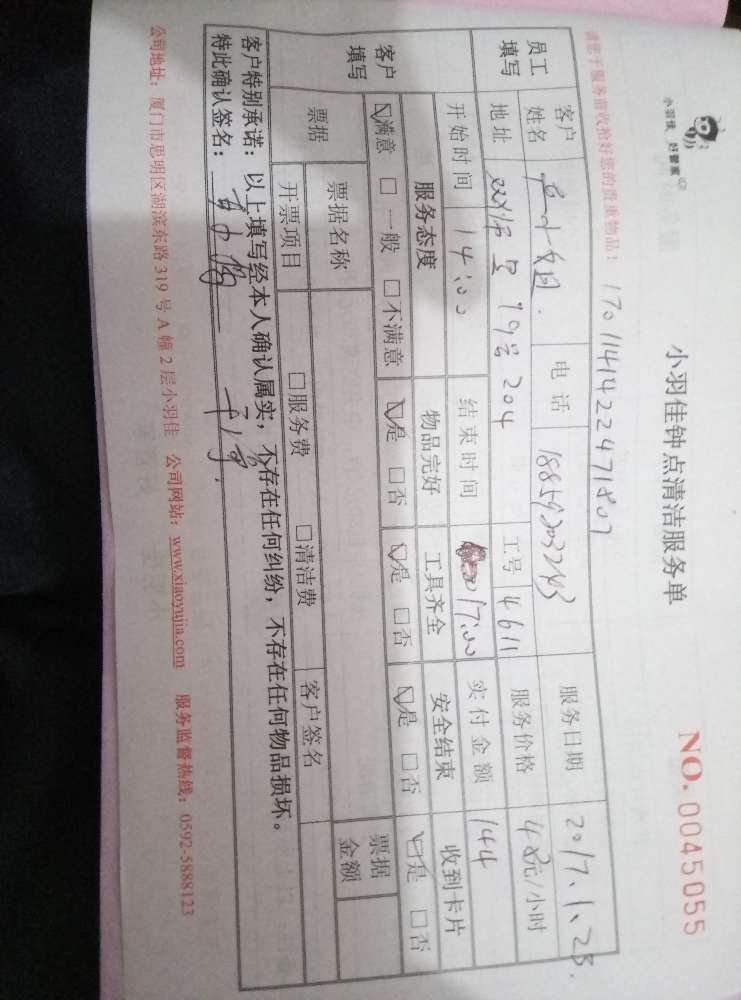 小羽佳 好管家
小羽佳钟点清洁服务单
NO. 0045055
请您于服务前收拾好您的贵重物品！ 1701141422471807
员工填写 客户姓名 小姐 电话 18859203243 服务日期 2017.1.23.
地址 79号204 工号 4611 服务价格 48元/小时
开始时间 14:00 结束时间 17:00 实付金额 144
客户填写 服务态度 物品完好 工具齐全 安全结束 收到卡片
☑满意 □一般 □不满意 ☑是 □否 ☑是 □否 ☑是 □否 ☑是 □否
票据 票据名称 票据金额
开票项目 □服务费 □清洁费 客户签名
客户特别承诺：以上填写经本人确认属实，不存在任何纠纷，不存在任何物品损坏。
特此确认签名：
公司地址：厦门市思明区湖滨东路319号A幢2层小羽佳 公司网站：www.xiaoyujia.com 服务监督热线：0592-5888123